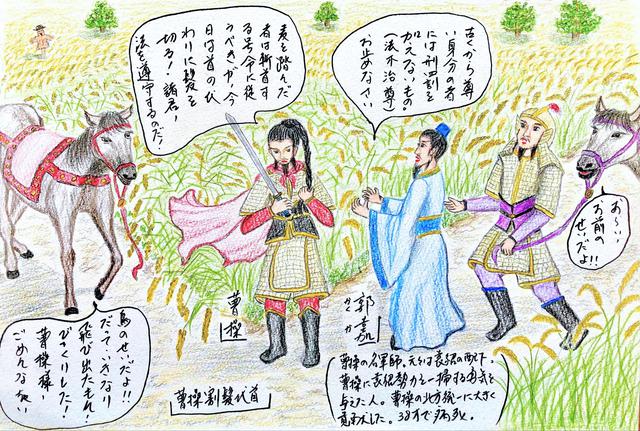 古くから尊
い身分の者
には刑罰を
加えないもの
(法不治尊)
お止めなさい
麦を踏んだ
者は斬首す
る号令に従
うべきだが、今
日は首の代
わりに髪を
切る!諸君、
法を遵守するのだ!
おいい、
お前の
せいだよ!!
鳥のせいだよ!!
だって、いきなり
飛び出たもん!
びっくりした!
曹操様、
ごめんなさい
曹操
郭嘉
かくか
曹操割髪代首
曹操の名軍師。元々は袁紹の配下。
曹操に袁紹勢力を一掃する勇気を
与えた人。曹操の北方統一に大きく
貢献した。38才で病死。